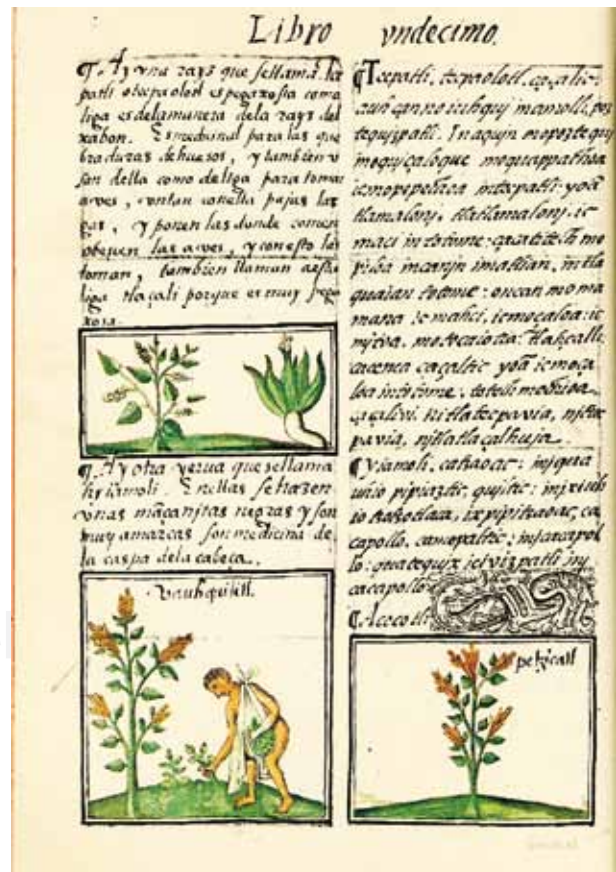 Libro vndecimo.
¶. Ay vna rayz que se llama tec
patli o tecpaolotl es pegaxosa como
liga es de la manera de la rayz del
xabon. Es medicinal para las que
braduras de huesos, y tambien v
san della como de liga para tomar
aves, vntan con ella pajas lar
gas, y ponen las donde comen
o beuen las aves, y con esto las
toman, tambien llaman a esta
liga tlaçali porque es muy pega
xosa.
¶. Ay otra yerua que se llama
yiamoli. En ellas se hazen
vnas mãçanitas negras y son
muy amargas son medicina de
la caspa de la cabeça.
vauhquilitl.
¶Tecpatli, tecpaolotl, caçalic:
çan no iuhquj in amolli, poz
tequizpatli. In aquin moposteguj
ic mopepeloca in tecpatli: yoã
tlamalonj, tlatlamalonj, ic
maci in totome: çacatitech mo
incanjn imatlian, in tla
quaian totome: oncan mo ma
mana: ic mahci, ic moçaloa: ic
cacenca caçaltic yoã ic moça
loa in totome. totolli
caçalivi. nitlatecpavia,
pavia, njtlatlaçalhuja.
¶Yiamoli, cahaoac: injquia
uhio pipiaztic, quiltic: injxiuh
io ixpipitzaoac, ca
capollo, camopaltic: injcacapol
lo: quatequjx icivizpatli in
cacapollo
¶Acocotli
petzicatl